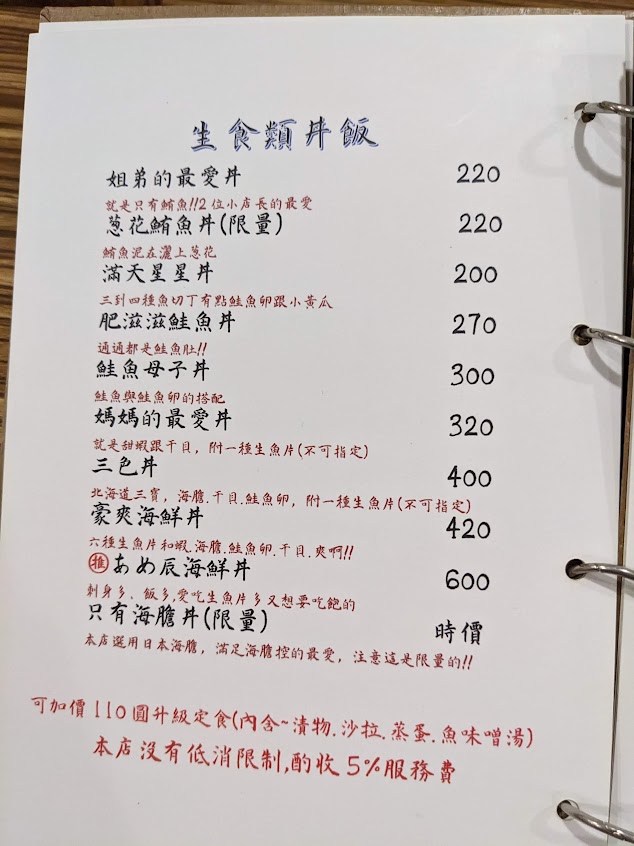 生食類丼飯
姐弟的最愛丼 220
就是只有鮪魚!!2位小店長的最愛
蔥花鮪魚丼(限量) 220
鮪魚泥在灑上蔥花
滿天星星丼 200
三到四種魚切丁有點鮭魚卵跟小黃瓜
肥滋滋鮭魚丼 270
通通都是鮭魚肚!!
鮭魚母子丼 300
鮭魚與鮭魚卵的搭配
媽媽的最愛丼 320
就是甜蝦跟干貝，附一種生魚片(不可指定)
三色丼 400
北海道三寶，海膽.干貝.鮭魚卵，附一種生魚片(不可指定)
豪爽海鮮丼 420
六種生魚片和蝦.海膽.鮭魚卵.干貝.爽啊!!
推 あめ辰海鮮丼 600
刺身多、飯多,愛吃生魚片多又想要吃飽的
只有海膽丼(限量) 時價
本店選用日本海膽，滿足海膽控的最愛，注意這是限量的!!
可加價110圓升級定食(內含~漬物.沙拉.蒸蛋.魚味噌湯)
本店沒有低消限制,酌收5%服務費